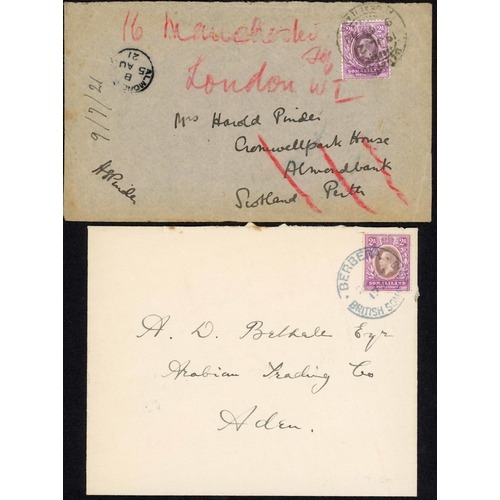 16 Manchester Sq
London W1
ALMON
B
5 AU
21
9/7/21
Mrs Harold Pinder
Cromwellpark House
Almondbank
Scotland Perth
HPinder
2A 2A
SOMALILAND
BERBERA
BRITISH SOM
A. D. Bethell Esqr
Arabian Trading Co
Aden.